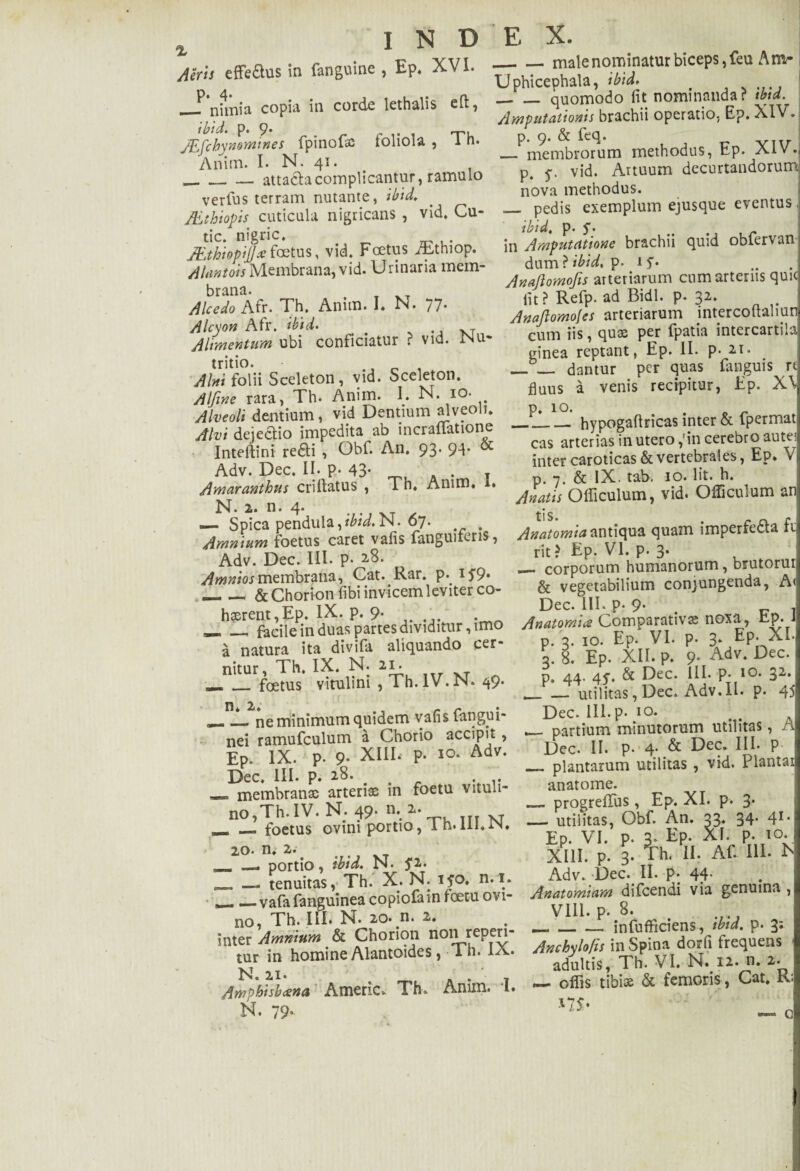 2
INDEX.
Aëris effectus in sanguine, Ep. XVI.
p. 4.
— nimia copia in corde lethalis est,
ibid. p. 9.
Æschynomines spinosæ foliola, Th.
Anim. I. N. 41.
— — — attacta complicantur, ramulo
versus terram nutante, ibid.
Æthiopis cuticula nigricans, vid. Cu-
tic. nigric.
Æthiopissæ fœtus, vid. Fœtus Æthiop.
Alantois Membrana, vid. Urinaria mem-
brana.
Alcedo Afr. Th. Anim. I. N. 77.
Alcyon Afr. ibid.
Alimentum ubi conficiatur? vid. Nu-
tritio.
Alni folii Sceleton, vid. Sceleton.
Alsine rara, Th. Anim. I. N. 10.
Alveoli dentium, vid Dentium alveoli.
Alvi dejectio impedita ab incrassatione
Intestini recti, Obs. An. 93. 94. &
Adv. Dec. II. p. 43.
Amaranthus cristatus, Th. Anim. I.
N. 2. n. 4.
— Spica pendula, ibid. N. 67.
Amnium foetus caret vasis sanguiferis,
Adv. Dec. III. p. 28.
Amnios membrana, Cat. Rar. p. 159.
— — & Chorion sibi invicem leviter co-
hærent, Ep. IX. p. 9.
— — facile in duas partes dividitur, imo
à natura ita divisa aliquando cer-
nitur, Th. IX. N. 21.
— — fœtus vitulini, Th. IV. N. 49.
n. 2.
— — ne minimum quidem vasis sangui-
nei ramusculum à Chorio accipit,
Ep. IX. p. 9. XIII. p. 10. Adv.
Dec. III. p. 28.
— membranæ arteriæ in foetu vituli-
no, Th. IV. N. 49. n. 2.
— — foetus ovini portio, Th. III. N.
20. n. 2.
— — portio, ibid. N. 52.
— — tenuitas, Th. X. N. 150. n. 1.
— — vasa sanguinea copiosa in fœtu ovi-
no, Th. III. N. 20. n. 2.
inter Amnium & Chorion non reperi-
tur in homine Alantoides, Th. IX.
N. 21.
Amphisbæna Americ. Th. Anim. I.
N. 79.
— — male nominatur biceps, seu Am-
Uphicephala, ibid.
— — quomodo sit nominanda? ibid.
Amputationis brachii operatio, Ep. XIV.
p. 9. & seq.
— membrorum methodus, Ep. XIV.
p. 5. vid. Artuum decurtandorum
nova methodus.
— pedis exemplum ejusque eventus,
ibid. p. 5.
in Amputatione brachii quid observan
dum? ibid. p. 15.
Anastomosis arteriarum cum arteriis quid
sit? Resp. ad Bidl. p. 32.
Anastomoses arteriarum intercostalium
cum iis, quæ per spatia intercartila
ginea reptant, Ep. II. p. 21.
— — dantur per quas sanguis re
fluus à venis recipitur, Ep. XV
p. 10.
— — — hypogastricas inter & spermat
cas arterias in utero, in cerebro autem
inter caroticas & vertebrales, Ep. V
p. 7. & IX. tab. 10. lit. h.
Anatis Officulum, vid. Officulum an
tis.
Anatomia antiqua quam imperfecta fu
rit? Ep. VI. p. 3.
— corporum humanorum, brutorum
& vegetabilium conjungenda, A
Dec. III. p. 9.
Anatomiæ Comparativæ noxa, Ep. I
p. 3. 10. Ep. VI. p. 3. Ep. XI.
3. 8. Ep. XII. p. 9. Adv. Dec.
p. 44. 45. & Dec. III. p. 10. 32.
— — utilitas, Dec. Adv. II. p. 45
Dec. III. p. 10.
— partium minutorum utilitas, A
Dec. II. p. 4. & Dec. III. p
— plantarum utilitas, vid. Plantar
anatome.
— progressus, Ep. XI. p. 3.
— utilitas, Obs. An. 33. 34. 41.
Ep. VI. p. 3. Ep. XI. p. 10.
XIII. p. 3. Th. II. Af. III. N
Adv. Dec. II. p. 44.
Anatomiam discendi via genuina,
VIII. p. 8.
— — — insufficiens, ibid. p. 3.
Anchylosis in Spina dorsi frequens
adultis, Th. VI. N. 12. n. 2.
— ossis tibiæ & femoris, Cat. R
175.